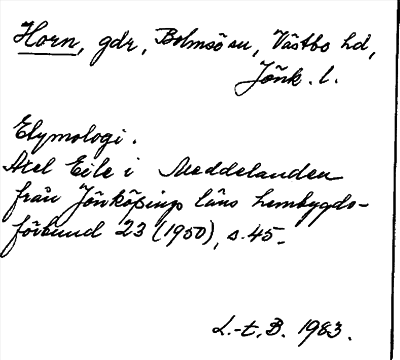 Horn, gdr, Bolmsö sn, Västbo hd,
Jönk. l.
Etymologi.
Axel Eile i Meddelanden
från Jönköpings läns hembygds-
förbund 23 (1950), s. 45-
L.-t, B. 1983.